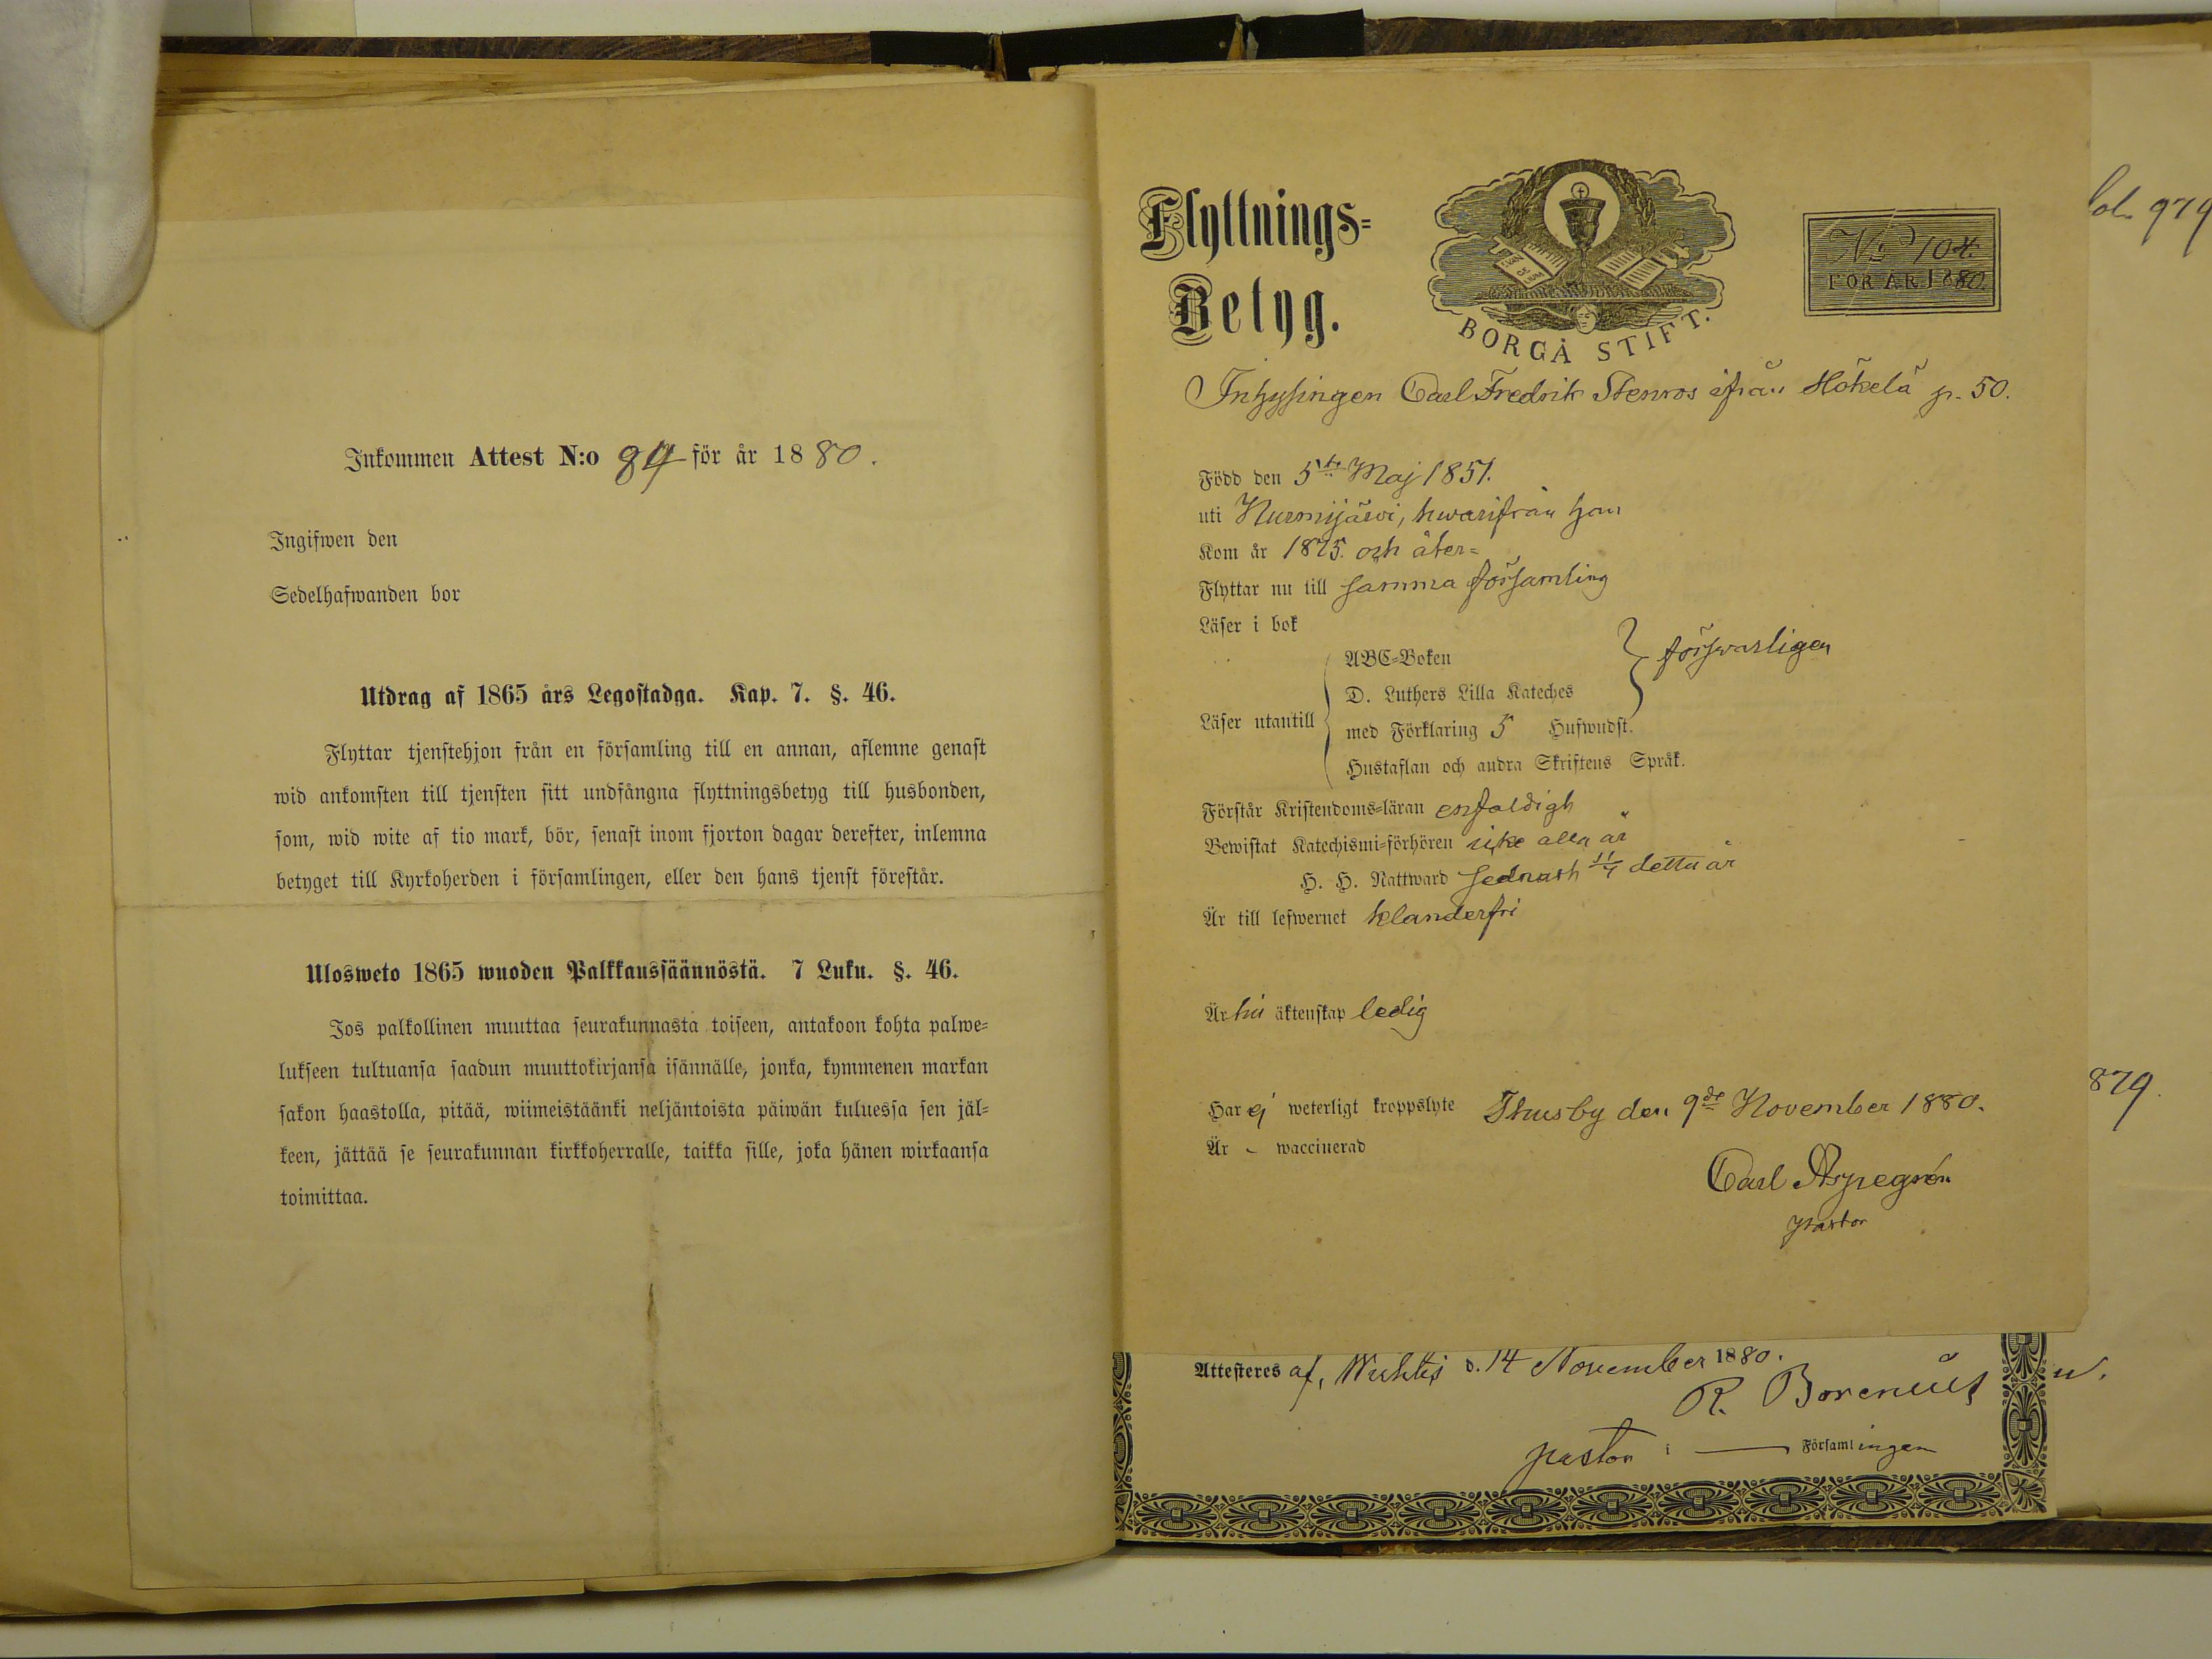 Inkommen Attest N:o 84 för år 1880.
Ingifwen den
Sedelhafwanden bor
Utdrag af 1865 års Legostadga. Kap. 7. §. 46.
Flyttar tjenstehjon från en församling till en annan, aflemne genast
wid ankomsten till tjensten sitt undfångna flyttningsbetyg till husbonden,
som, wid wite af tio mark, bör, senast inom fjorton dagar derefter, inlemna
betyget till Kyrkoherden i församlingen, eller den hans tjenst förestår.
Ulosweto 1865 wuoden Palkkaussäännöstä. 7 Luku. §. 46.
Jos palkollinen muuttaa seurakunnasta toiseen, antakoon kohta palwe-
lukseen tultuansa saadun muuttokirjansa isännälle, jonka, kymmenen markan
sakon haastolla, pitää, wiimeistäänki neljäntoista päiwän kuluessa sen jäl-
keen, jättää se seurakunnan kirkkoherralle, taikka sille, joka hänen wirkaansa
toimittaa.
Flyttnings-
Betyg.
EVAN GE LIUM
BORGÅ STIFT.
No 104.
FÖR ÅR 1880.
Inhysingen Carl Fredrik Stenros ifrån Hökelä p. 50.
Född den 5te Maj 1851.
uti Nurmijärvi, hwarifrån han
Kom år 1875. och åter-
Flyttar nu till samma församling
Läser i bok
ABC-Boken
försvarligen
D. Luthers Lilla Kateches
Läser utantill
med Förklaring 5 Hufwudst.
Hustaflan och andra Skriftens Språk.
Förstår Kristendoms-läran enfaldigt
Bewistat Katechismi-förhören icke alla år
H. H. Nattward sednast 11/7 detta år
Är till lefwernet klanderfri
Är till äktenskap ledig
Har ej weterligt kroppslyte Thusby den 9de November 1880.
Är - waccinerad
Carl Aspegrén
Pastor
Attesteres af, Wichtis d. 14 November 1880.
R. Borenius
pastor i — Församlingen
fol. 979
879.